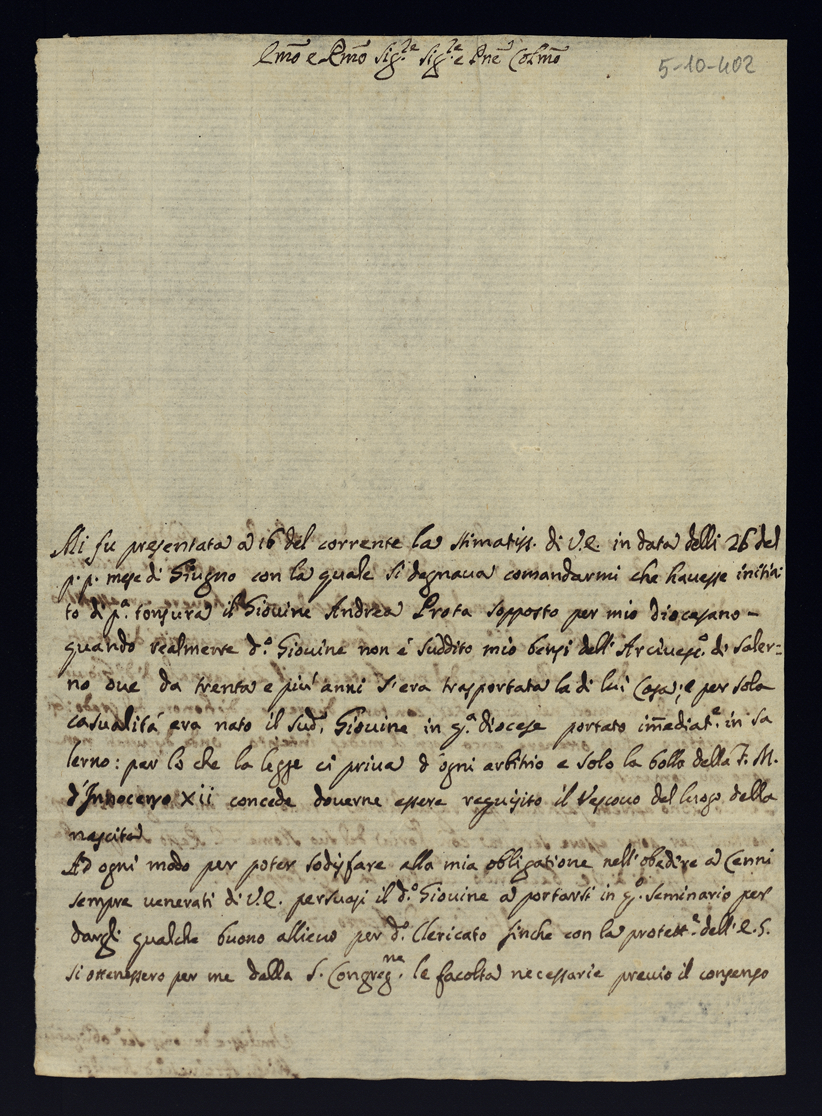 Emõ e Rmõ Sig.re Sig.re e Pne Colmõ
5-10-402
Mi fu presentata a 16 del corrente la stimatiss. di V.E. in data delli 26 del
p.p. mese di Giugno con la quale si degnava comandarmi che havesse initia
to di p.a tonsura il Giovine Andrea Prota sopposto per mio diocesano –
quando realmente d.o Giovine non é suddito mio bensi dell'Arcivesc.o di Saler=
no ove da trenta e piu' anni s'era trasportata la di lui Casa; e per sola
casualitá era nato il sud.o Giovine in q.a diocese portato im̃ediat.e in Sa
lerno: per lo che la legge ci priva d'ogni arbitrio e solo la bolla della F.M.
d'Innocenzo Xii concede doverne essere requisito il Vescovo del luogo della
nascita
Ad ogni modo per poter sodisfare alla mia obligatione nell'obedire a Cenni
sempre venerati di V.E. persuasi il d.o Giovine a portarsi in q.o seminario per
dargli qualche buono allievo per d.o Clericato finche con la protett.e dell'E.S.
si ottenessero per me dalla S. Congreg.ne le facolta necessarie previo il consenso